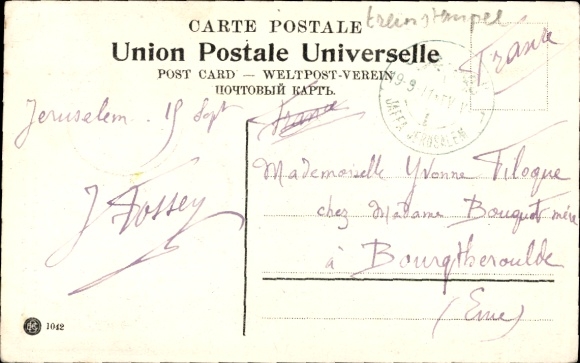 treinstempel
CARTE POSTALE
Union Postale Universelle
POST CARD — WELTPOST-VEREIN
ПОЧТОВЫЙ КАРТЪ.
France
JAFFA JERUSALEM
Jeruselem 15 Sept
France
J Fossey
Mademoiselle Yvonne Filoque
chez Madame Bouquot mère
à Bourgtheroulde
(Eure)
1042